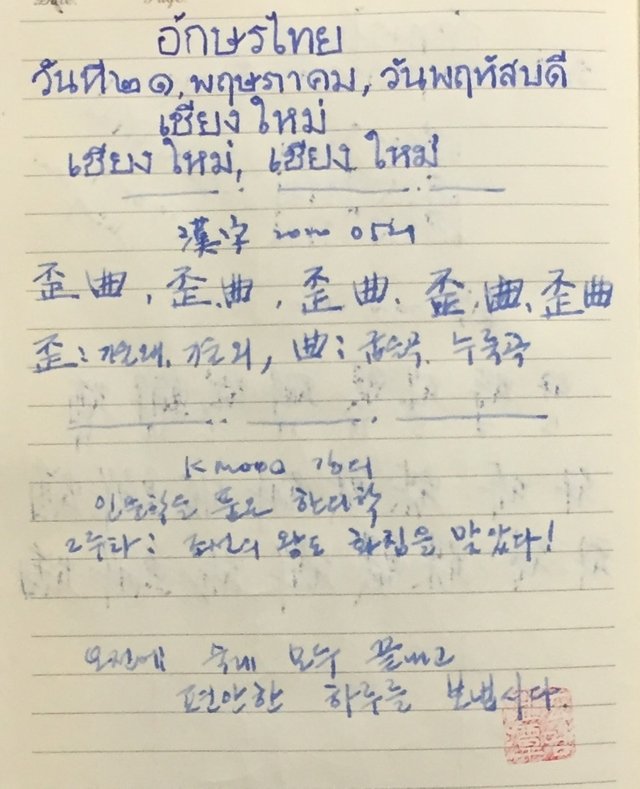 อักษรไทย
วันที่๒๑,พฤษภาคม,วันพฤหัสบดี
เชียงใหม่
เชียงใหม่, เชียงใหม่
漢字 2020 0521
歪曲, 歪曲, 歪曲, 歪曲, 歪曲
歪: 기울 왜, 기울 외, 曲: 굽을 곡, 누룩 곡
K mooc 강의
인문학을 품은 한의학
2주차: 조선의 왕도 화침을 맞았다!
오전에 숙제 모두 끝내고
편안한 하루를 보냅시다.